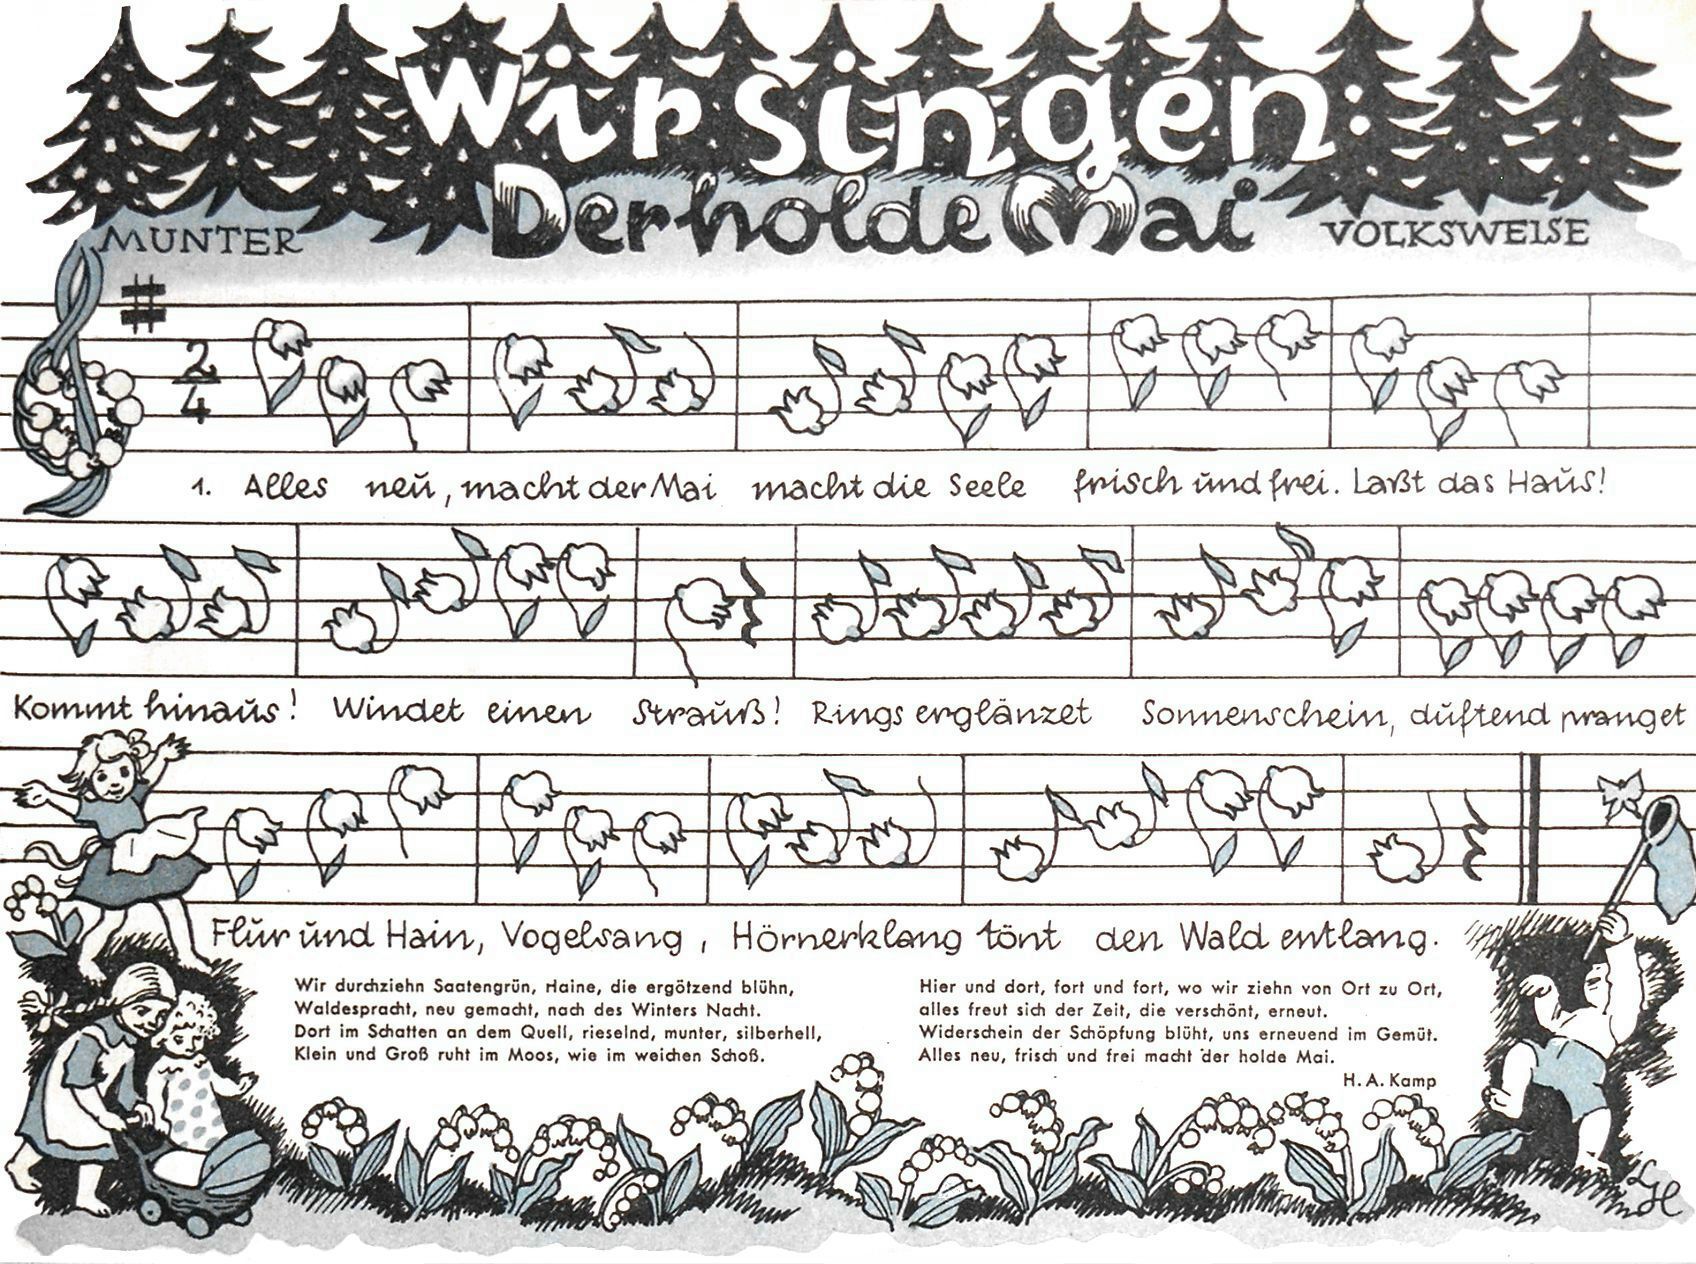 Wir singen:
Der holde Mai
MUNTER
VOLKSWEISE
2
4
1. Alles neu, macht der Mai macht die Seele frisch und frei. Laßt das Haus!
Kommt hinaus! Windet einen Strauß! Rings erglänzet Sonnenschein, duftend pranget
Flur und Hain, Vogelsang, Hörnerklang tönt den Wald entlang.
Wir durchziehn Saatengrün, Haine, die ergötzend blühn,
Waldespracht, neu gemacht, nach des Winters Nacht.
Dort im Schatten an dem Quell, rieselnd, munter, silberhell,
Klein und Groß ruht im Moos, wie im weichen Schoß.
Hier und dort, fort und fort, wo wir ziehn von Ort zu Ort,
alles freut sich der Zeit, die verschönt, erneut.
Widerschein der Schöpfung blüht, uns erneuend im Gemüt.
Alles neu, frisch und frei macht der holde Mai.
H. A. Kamp